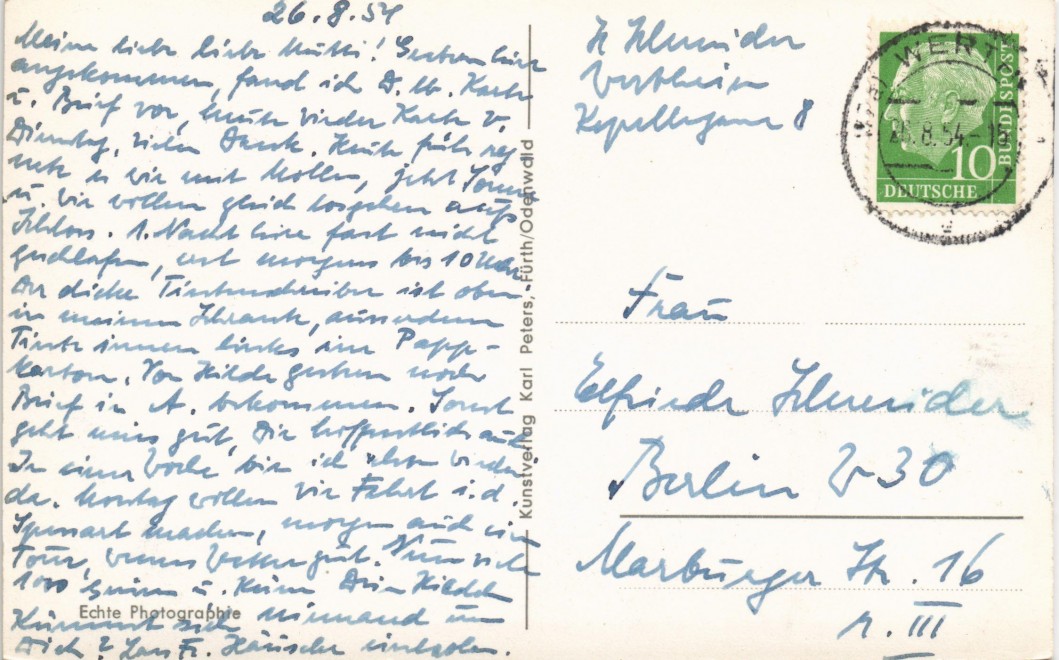 26.8.54
Meine liebe liebe Mutti! Gestern hier
angekommen, fand ich D. lb. Karte
u. Brief vor, heute wieder Karte v.
Dienstag, vielen Dank. Heute früh reg-
nete es wie mit Mollen, jetzt Sonne
u. wir wollen gleich losgehen aufs
Schloss. 1. Nacht hier fast nicht
geschlafen, erst morgens bis 10 Uhr.
Der dicke Tintenschreiber ist oben
in meinem Schrank, ausserdem
Tinte innen links im Papp-
karton. Von Hilde gestern noch
Brief in A. bekommen. Sonst
geht uns gut, Dir hoffentlich auch
In einer Woche bin ich schon wieder
da. Montag wollen wir Fahrt i. d.
Spessart machen, morgen auch eine
Tour, wenns Wetter gut. Nun viele
1000 Grüsse u. Küsse Dein Hildchen
Kümmert sich niemand um
Dich? Lass Fr. Häusche einholen.
Echte Photographie
Kunstverlag Karl Peters, Fürth/Odenwald
H Schneider
Wertheim
Kapellengasse 8
WERTHEIM
26.8.54.-18
10
DEUTSCHE
BUNDESPOST
Frau
Elfriede Schneider
Berlin W 30
Marburger Str. 16
r. III